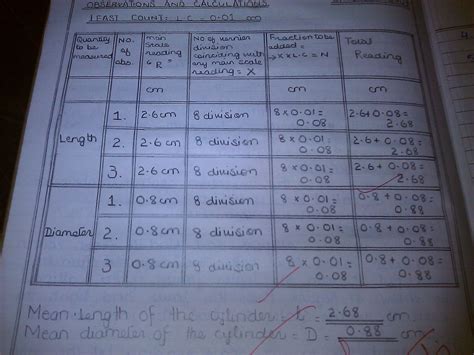 OBSERVATIONS AND CALCULATIONS
LEAST COUNT: L.C = 0.01 cm
Quantity to be measured
No. of obs.
main scale reading "R"
No of vernier division coinciding with any main scale reading = X
Fraction to be added = X x L.C = N
Total Reading
cm cm cm
Length
1. 2.6 cm 8 division 8 x 0.01 = 0.08 2.6 + 0.08 = 2.68
2. 2.6 cm 8 division 8 x 0.01 = 0.08 2.6 + 0.08 = 2.68
3. 2.6 cm 8 division 8 x 0.01 = 0.08 2.6 + 0.08 = 2.68
Diameter
1. 0.8 cm 8 division 8 x 0.01 = 0.08 0.8 + 0.08 = 0.88
2. 0.8 cm 8 division 8 x 0.01 = 0.08 0.8 + 0.08 = 0.88
3 0.8 cm 8 division 8 x 0.01 = 0.08 0.8 + 0.08 = 0.88
Mean length of the cylinder = L = 2.68 cm
Mean diameter of the cylinder = D = 0.88 cm